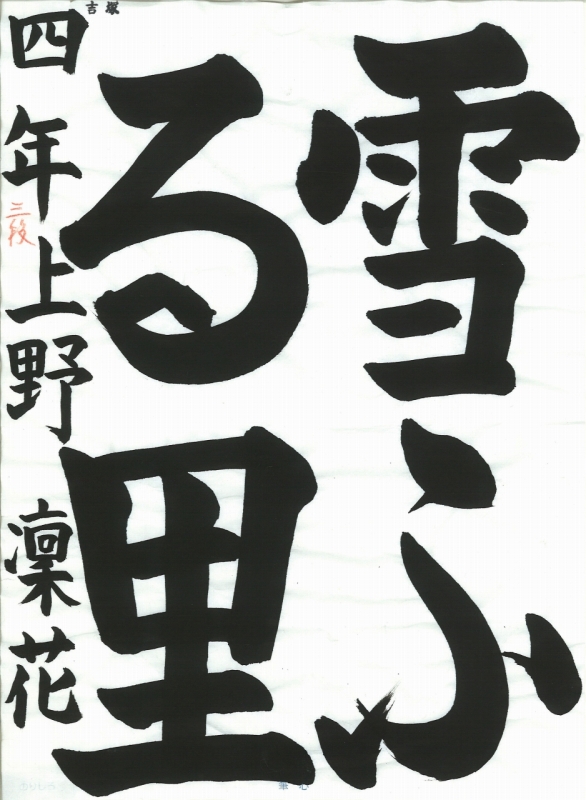 雪ふ
る里
四年上野 凜花
三段
吉塚
筆心